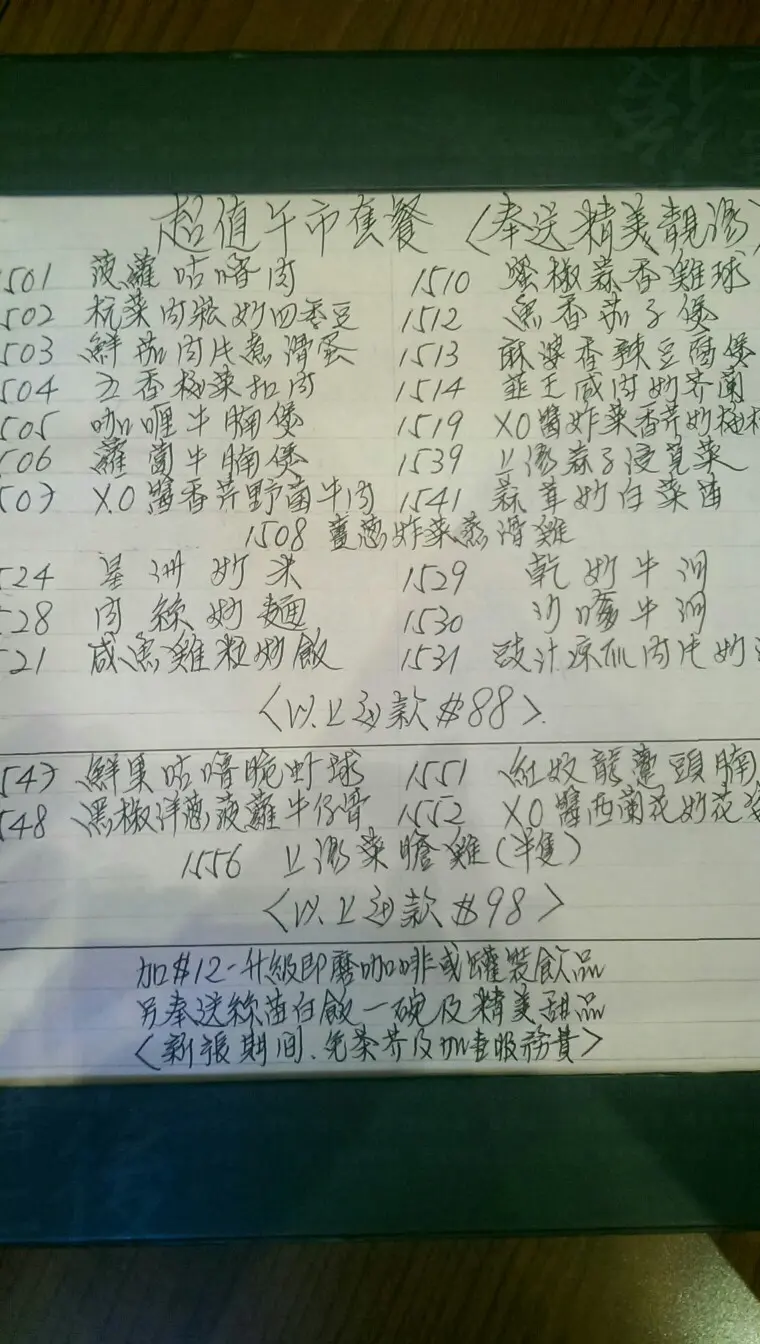 超值午市套餐〈奉送精美靚湯〉
1501 菠蘿咕嚕肉 1510 蜜椒蒜香雞球
502 杬菜肉崧炒四季豆 1512 魚香茄子煲
503 鮮茄肉片煮滑蛋 1513 麻婆香辣豆腐煲
504 五香梅菜扣肉 1514 韮王咸肉炒芥蘭
505 咖喱牛腩煲 1519 XO醬炸菜香芹炒
506 蘿蔔牛腩煲 1539 上湯蒜子浸莧菜
507 X.O醬香芹野菌牛肉 1541 蒜茸炒白菜苗
1508 薑葱炸菜蒸滑雞
524 星洲炒米 1529 乾炒牛河
528 肉絲炒麵 1530 沙嗲牛河
521 咸魚雞粒炒飯 1531 豉汁凉瓜肉片炒
〈以上每款$88〉
547 鮮果咕嚕脆虾球 1551 紅炆龍躉頭腩
548 黑椒洋葱菠蘿牛仔骨 1552 XO醬西蘭花炒花
1556 上湯菜膽雞(半隻)
〈以上每款$98〉
加$12-升級即磨咖啡或罐裝飲品
另奉送絲苗白飯一碗及精美甜品
〈新張期间、免茶芥及加壹服務費〉